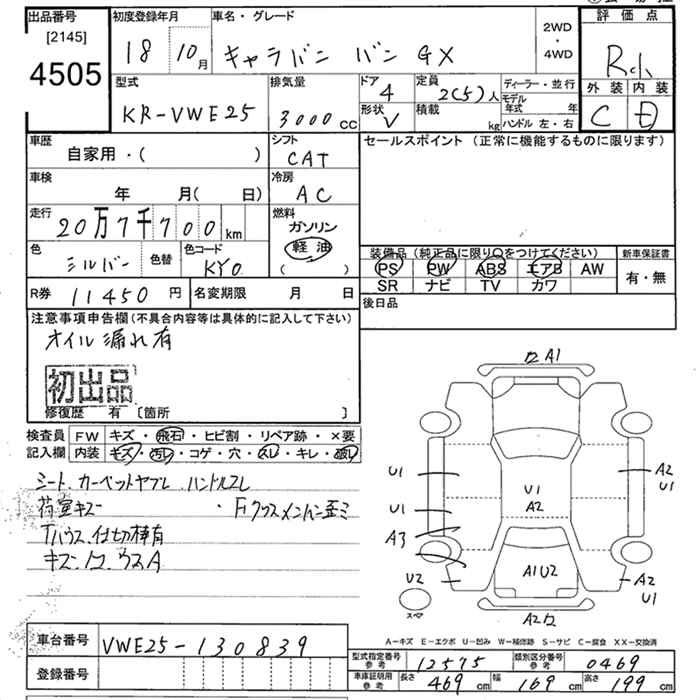 出品番号 [2145] 4505
初度登録年月 18 10月
車名・グレード キャラバン バン GX
2WD・4WD
評価点
外装 C 内装 D
型式 KR-VWE25
排気量 3000cc
ドア 4
形状 V
定員 2(5)人
積載 kg
ディーラー・並行
モデル年式 年
ハンドル 左・右
車歴 自家用・( )
シフト CAT
車検 年 月( 日)
冷房 AC
走行 20万7千700km
燃料 ガソリン 軽油 ( )
色 シルバー 色替 色コード KY0
R券 11450円 名変期限 月 日
セールスポイント (正常に機能するものに限ります)
装備品 (純正品に限り○をつけてください) 新車保証書
PS PW ABS エアB AW 有・無
SR ナビ TV カワ
後日品
注意事項申告欄(不具合内容等は具体的に記入して下さい)
オイル漏れ有
初出品
修復歴 有 [箇所 ]
検査員記入欄
FW キズ・飛石・ヒビ割・リペア跡・×要
内装 キズ・汚レ・コゲ・穴・スレ・キレ・破レ
シート.カーペットヤブレ ハンドルスレ
荷室キズ
仕切棒有
A1
U1 A2 U1
U1 U1 A2
A3
U2 A1U2 A2 U1
スペア
A2
A-キズ E-エクボ U-凹み W-補修跡 S-サビ C-腐食 XX-交換済
車台番号 VWE25-130839
登録番号
型式指定番号 参考 12575 類別区分番号 参考 0469
車庫証明用 参考 長さ 469cm 幅 169cm 高さ 199cm